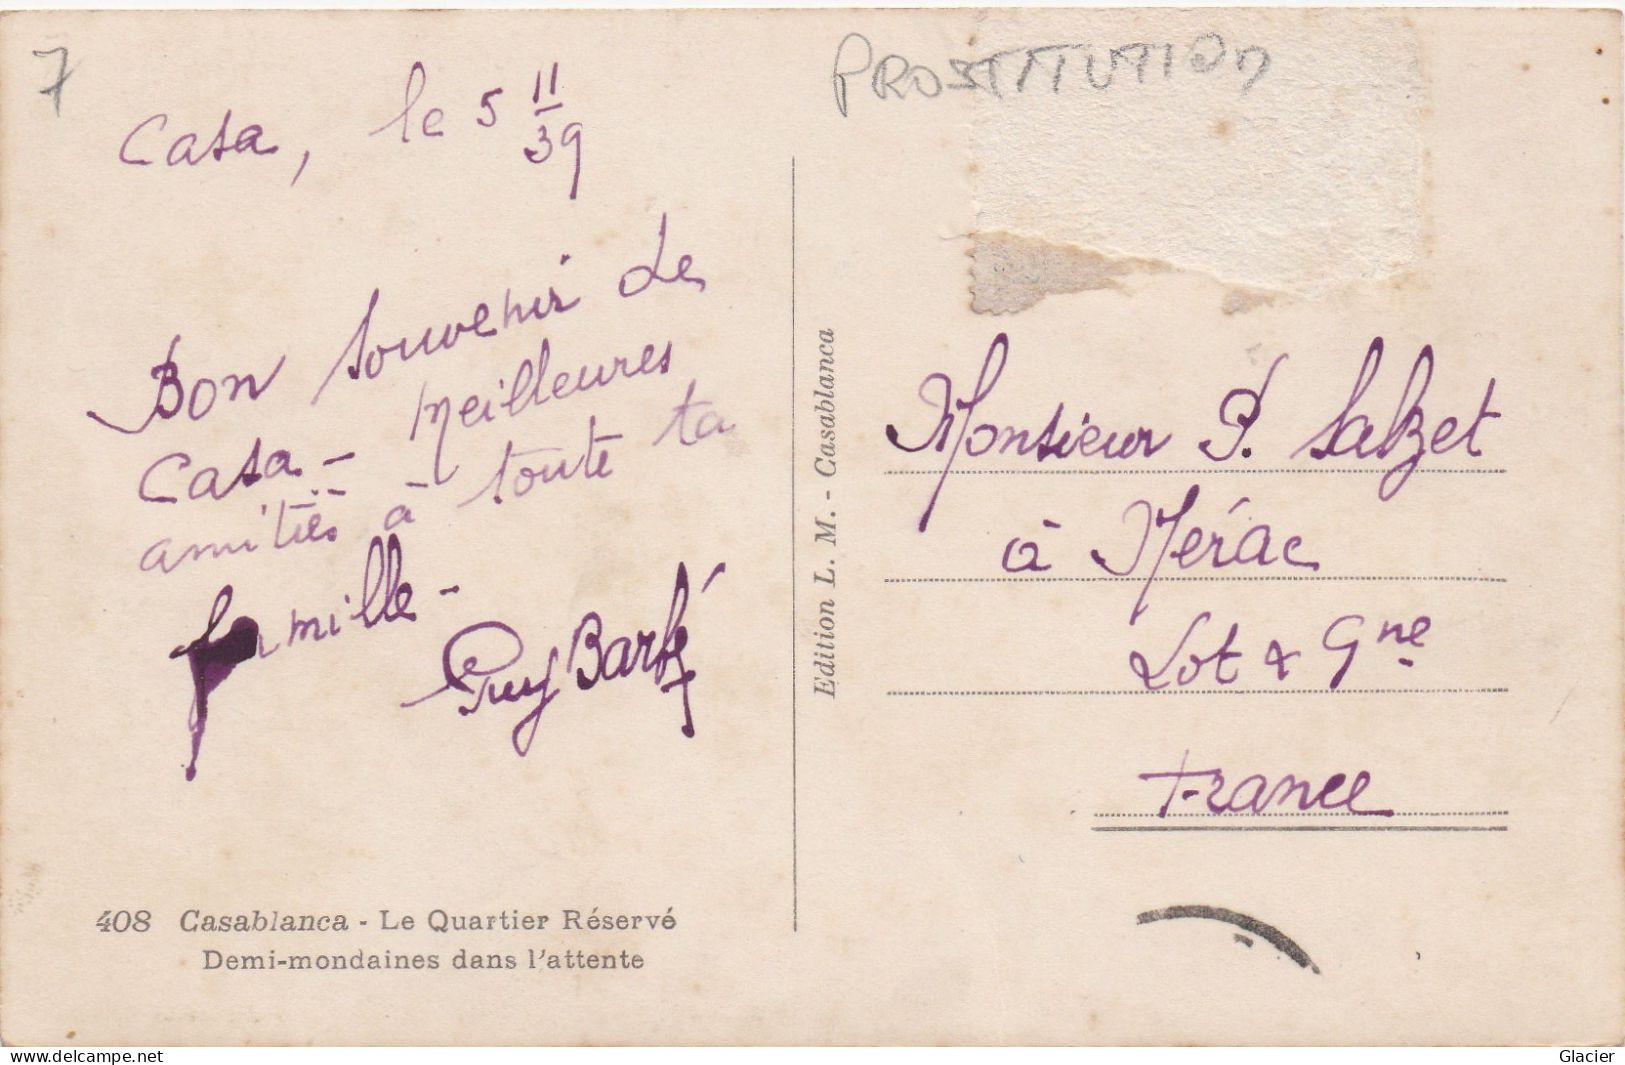 7
PROSTITUTION
Casa, le 5 11/39
Bon souvenir de
Casa - meilleures
amitiés à toute ta
famille -
Guy Barbé
408 Casablanca - Le Quartier Réservé
Demi-mondaines dans l'attente
Edition L. M. - Casablanca
Monsieur P. Salzet
à Nérac
Lot & Gne
France
www.delcampe.net
Glacier